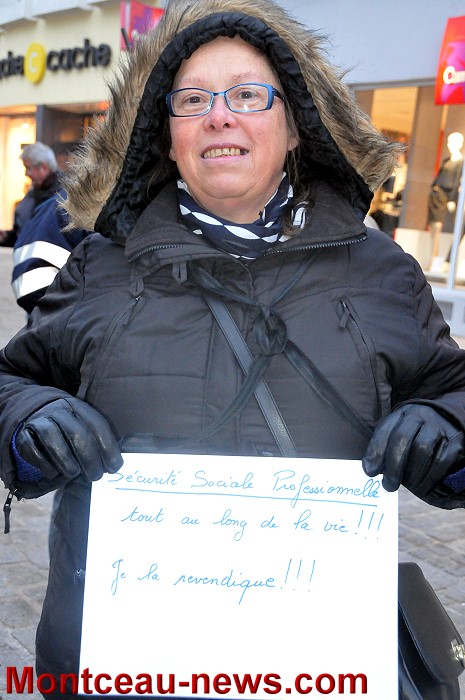 cache cache
Sécurité Sociale Professionnelle
tout au long de la vie!!!
Je la revendique!!!
Montceau-news.com